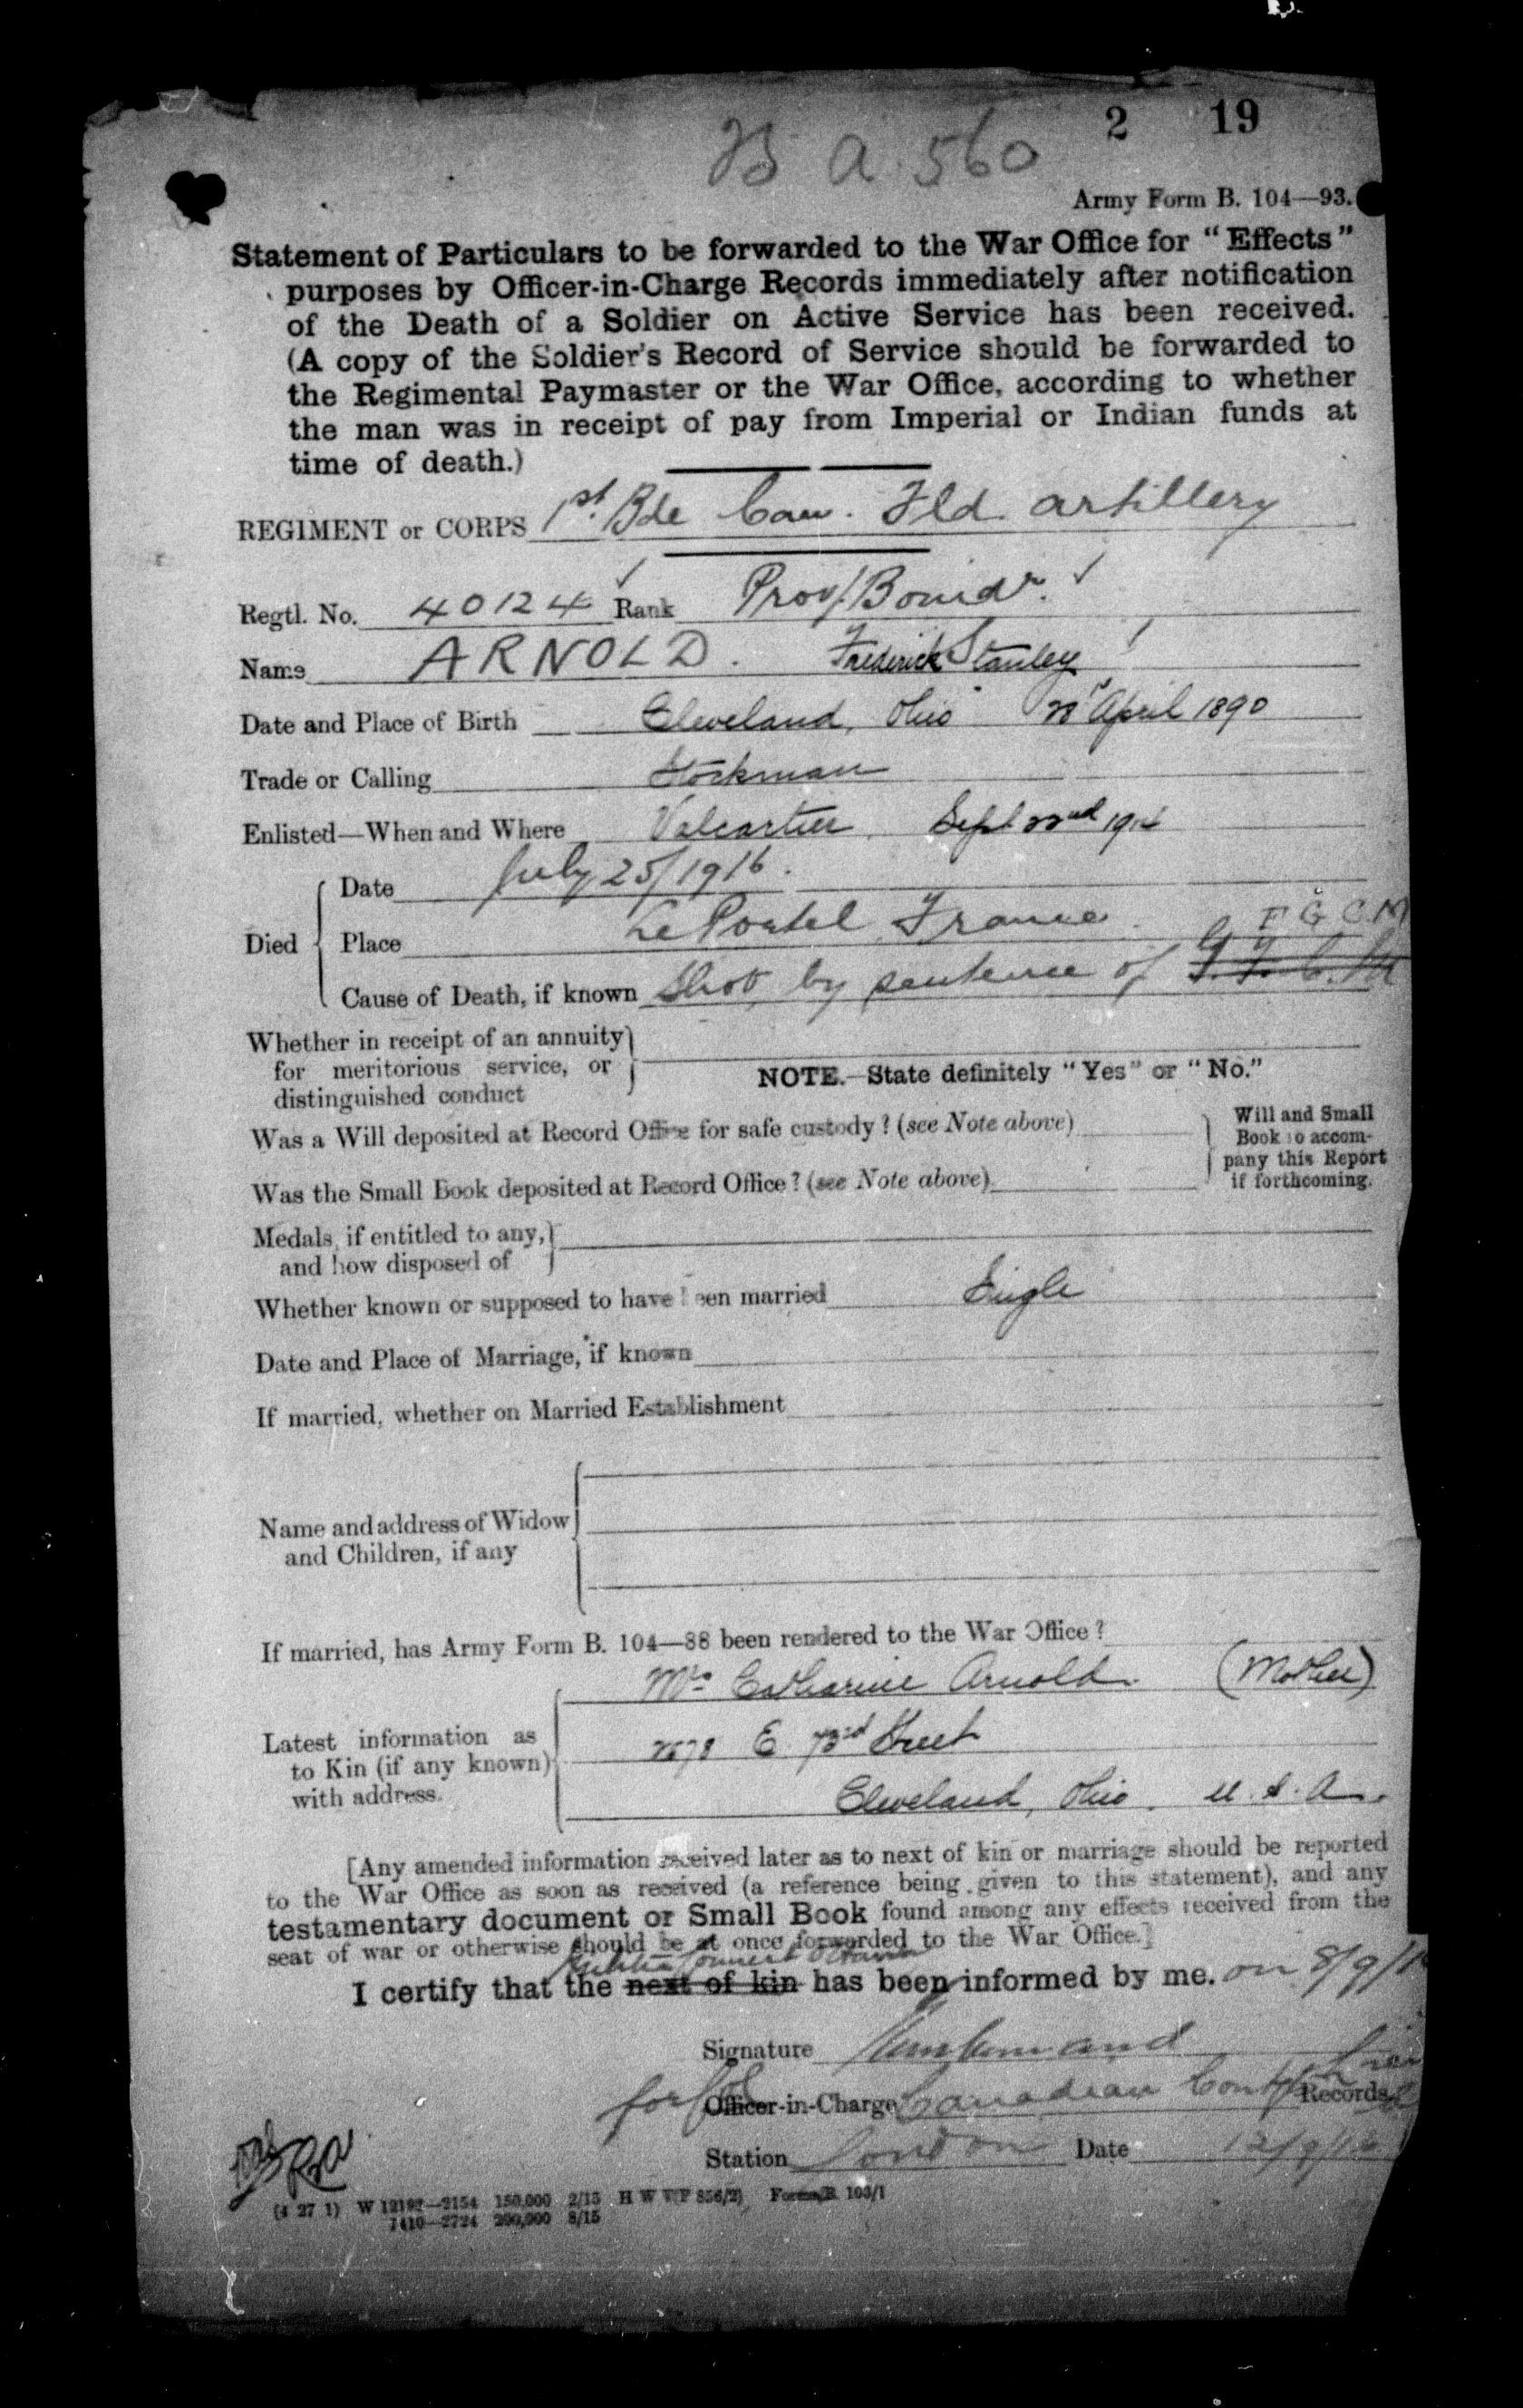 2 19
B a 560
Army Form B. 104—93.
Statement of Particulars to be forwarded to the War Office for "Effects"
purposes by Officer-in-Charge Records immediately after notification
of the Death of a Soldier on Active Service has been received.
(A copy of the Soldier's Record of Service should be forwarded to
the Regimental Paymaster or the War Office, according to whether
the man was in receipt of pay from Imperial or Indian funds at
time of death.)
REGIMENT or CORPS 1st. Bde Can. Fld. artillery
Regtl. No. 40124 Rank Prov/Bombdr.
Name ARNOLD. Frederick Stanley
Date and Place of Birth Cleveland, Ohio April 1890
Trade or Calling Stockman
Enlisted—When and Where Valcartier. Sept 22nd 1914
Died
Date July 25/1916.
Place Le Portel France.
F G C M
Cause of Death, if known Shot by sentence of
Whether in receipt of an annuity
for meritorious service, or
distinguished conduct
NOTE.—State definitely "Yes" or "No."
Was a Will deposited at Record Office for safe custody? (see Note above)
Was the Small Book deposited at Record Office? (see Note above)
Will and Small
Book to accom-
pany this Report
if forthcoming.
Medals, if entitled to any,
and how disposed of
Whether known or supposed to have been married Single
Date and Place of Marriage, if known
If married, whether on Married Establishment
Name and address of Widow
and Children, if any
If married, has Army Form B. 104—88 been rendered to the War Office?
Latest information as
to Kin (if any known)
with address.
Mrs Catharine Arnold. (Mother)
2678 E. 73rd Street
Cleveland, Ohio. U.S.A.
[Any amended information received later as to next of kin or marriage should be reported
to the War Office as soon as received (a reference being given to this statement), and any
testamentary document or Small Book found among any effects received from the
seat of war or otherwise should be at once forwarded to the War Office.]
Militia Council Ottawa
I certify that the next of kin has been informed by me. on 8/9/16
Signature
for Officer-in-Charge Canadian Records
Station London Date 12/9/16
(4 27 1) W 12192—2154 150,000 2/15 H W V(P 856/2) Forms/B. 103/1
7410—2724 200,000 8/15